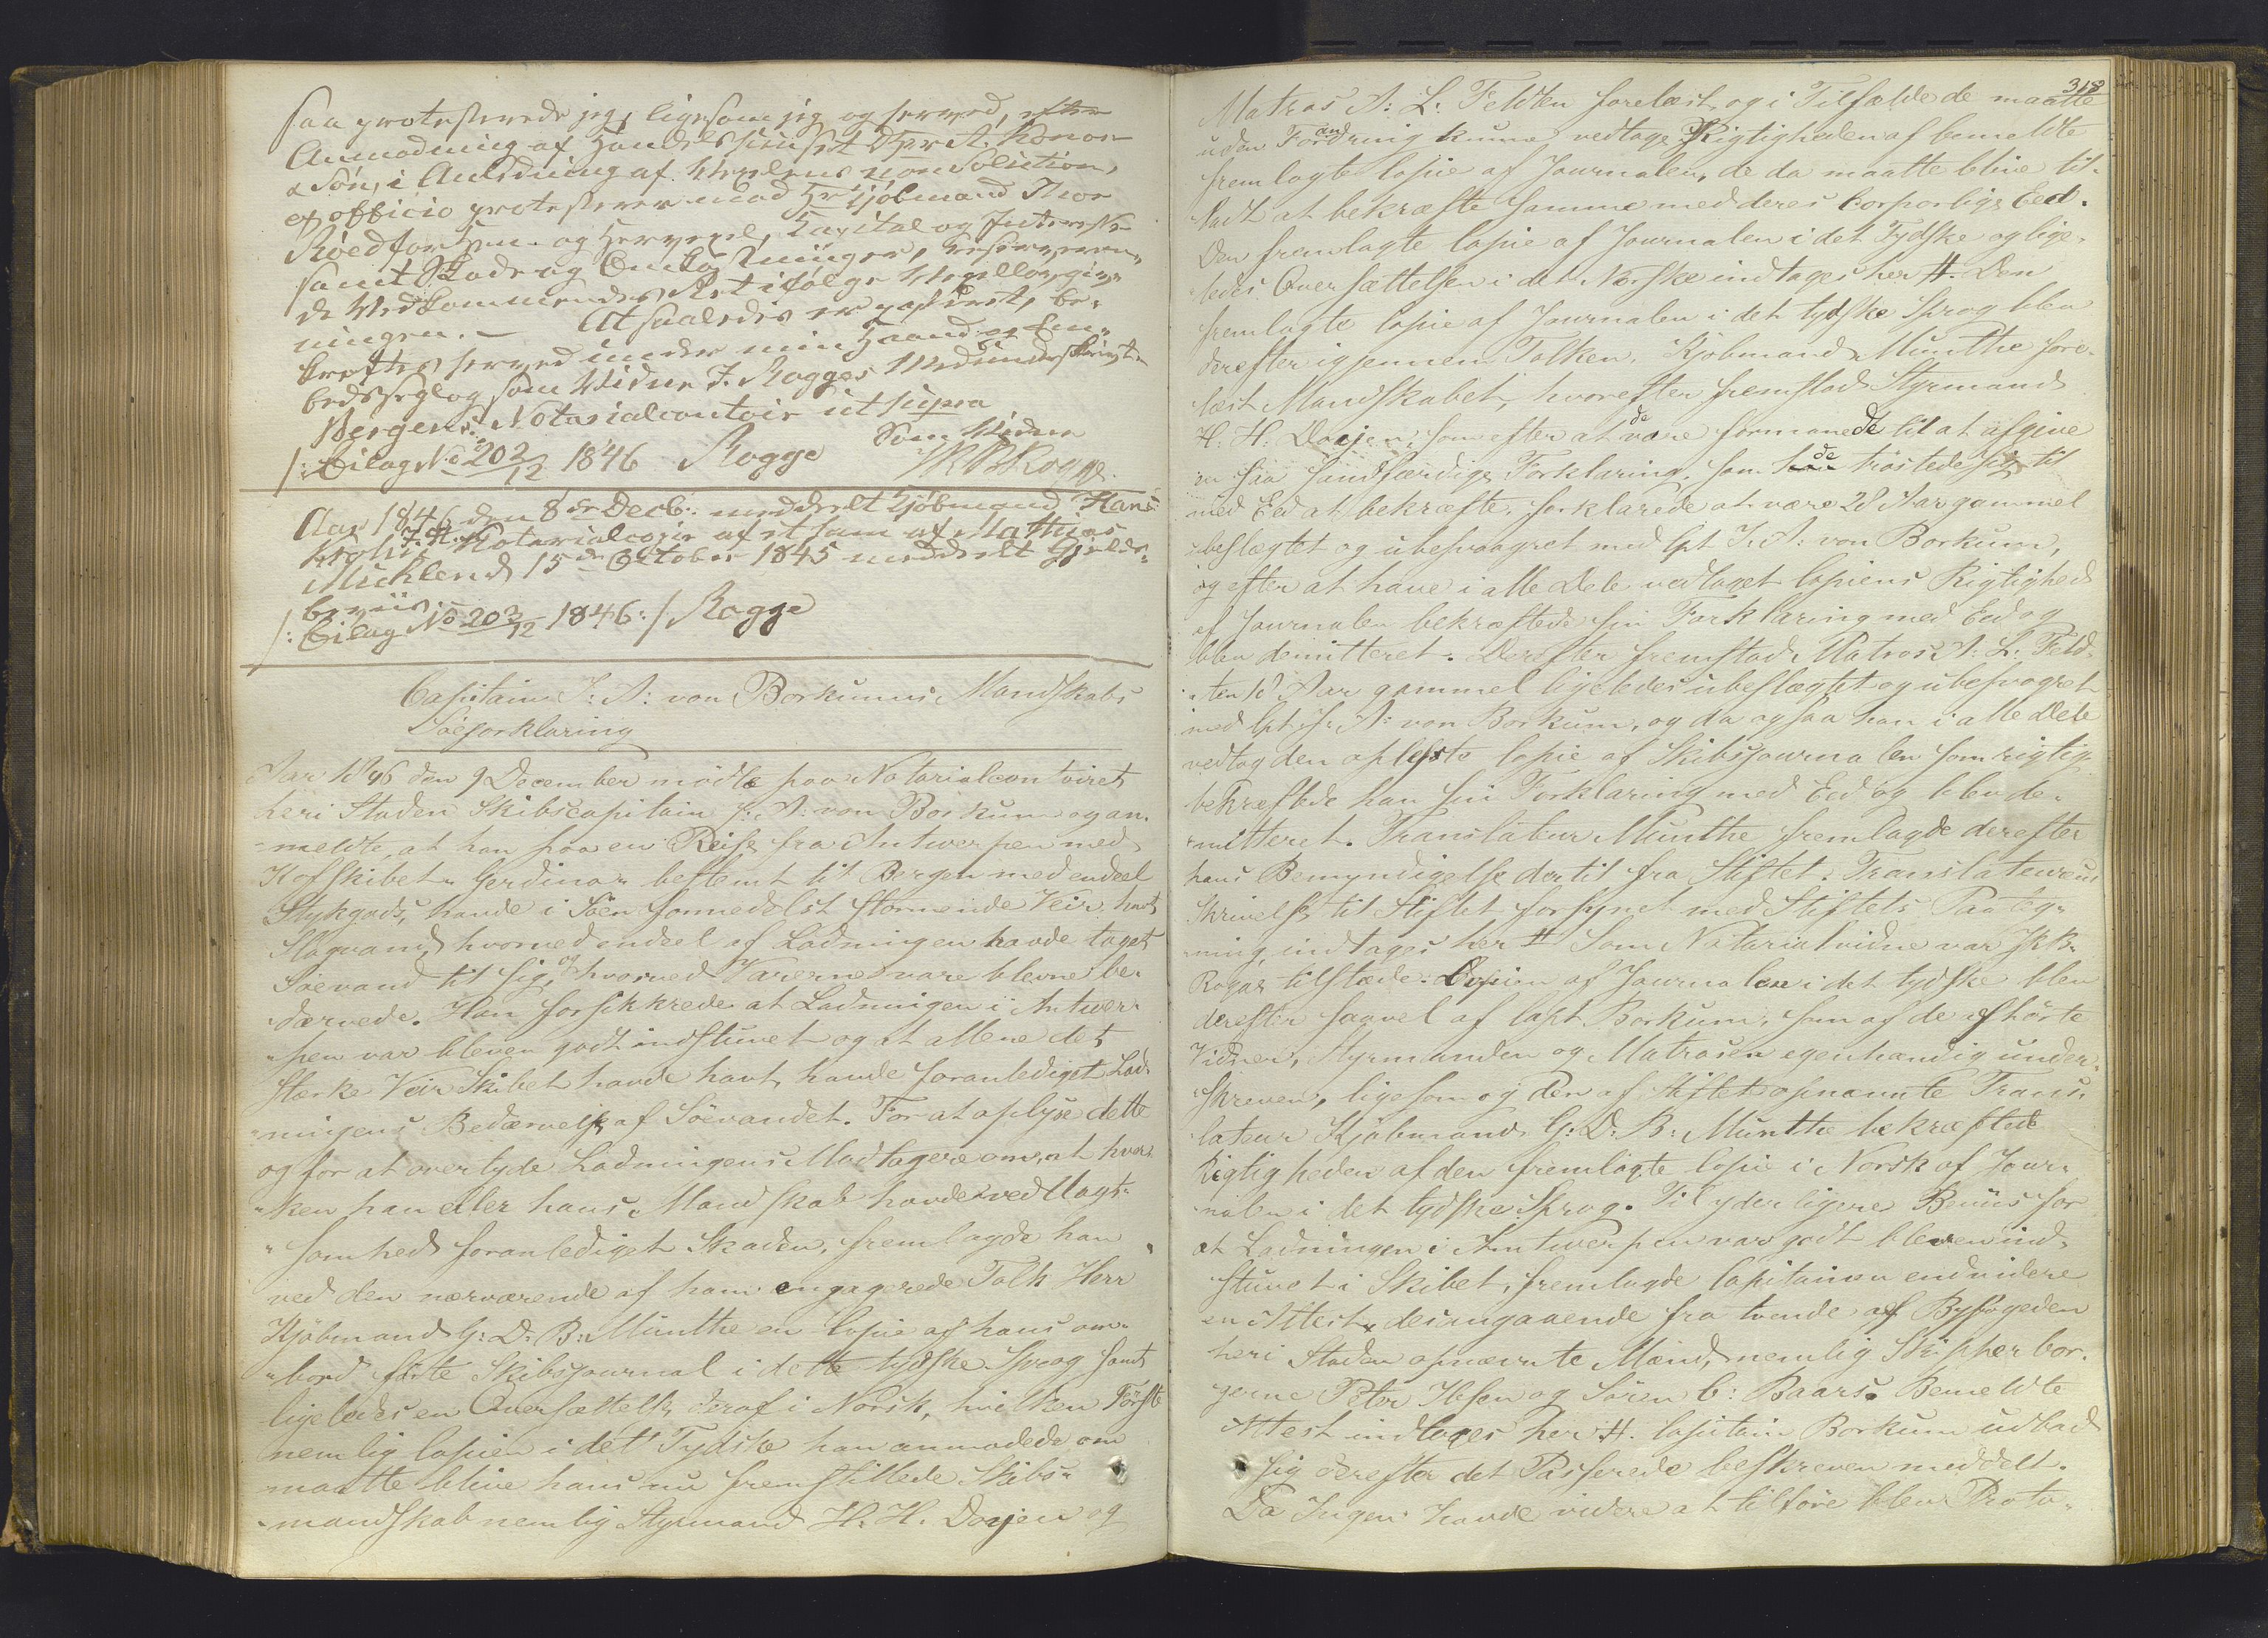 saa protesterede jeg, ligesom jeg og herved, efter
Anmodning af Handelshuuset Dpr A. Konow
& Søn, i Anledning af Vexlens non Solution,
ex officio protesterer mod Hr Kjøbmand Thor
Røed for Hen- og Hervexel, Capital og Interesser
samt Skade og Omkostninger, reserveren-
de Vedkommendes Ret ifølge Vexellovgiv-
ningen. – At saaledes er passeret, be-
kræftes herved under min Haand og Em-
bedssegl og som Vidne J. Rogges Medunderskrivt
Bergens Notarialcontoir ut supra
Som Vidne
/: Bilag No 202/12 1846 Rogge JKBRogge.
Aar 1846 den 8de Decb: meddeelt Kjøbmand Hans
Krohn J. H. Notarialcopie af et ham af Mathias
Michlend 15de October 1845 meddeelt Gjelds-
beviis.
/: Bilag No 203/12 1846 :/ Rogge
Capitain J: A: von Borkums Mandskabs
Söeforklaring
Aar 1846 den 9 December mödte paa Notarialcontoiret
her i Staden Skibscapitain J: A: von Borkum og an-
meldte, at han paa en Reise fra Antwerpen med
Kofskibet "Gerdina" bestemt til Bergen med endeel
Stykgods, havde i Söen formedelst stormende Veir havt
Slagvand, hvorved endeel af Ladningen havde taget
Söevand til sig, og hvorved Varerne vare blevne be-
dærvede. Han forsikkrede at Ladningen i Antwer-
pen var bleven godt indstuvet og at allene det
stærke Veir Skibet havde havt, havde foranlediget Lad-
ningens Bedærvelse af Söevandet. For at oplyse dette
og for at overtyde Ladningens Modtagere om, at hver-
ken han eller hans Mandskab havde ved Uagt-
somhed foranlediget Skaden, fremlagde han
ved den nærværende af ham engagerede Tolk Herr
Kjöbmand G: D: B: Munthe en Copie af hans om-
bord förte Skibsjournal i dette tydske Sprog samt
ligeledes en Oversættelse deraf i Norsk, hvilken Förste
nemlig Copien i det Tydske han anmodede om
maatte blive hans nu fremstillede Skibs-
mandskab nemlig Styrmand H. H. Dorjen og
318
Matros A: L: Feldten forelæst, og i Tilfælde de maatte
uden Forandring kunne vedtage Rigtigheden af bemeldte
fremlagte Copie af Journalen, de da maatte blive til-
ladt at bekræfte samme med deres Corporlige Eed.
Den fremlagte Copie af Journalen i det Tydske og lige-
ledes Oversættelsen i det Norske indtages her #. Den
fremlagte Copie af Journalen i det tydske Sprog blev
derefter igjennem Tolken, Kjöbmand Munthe fore-
læst Mandskabet, hvorefter fremstod Styrmand
H: H: Dorjen, som efter at være formanede til at afgive
en saa sandfærdig Forklaring, som de tröstede sig til
med Eed at bekræfte, forklarede at være 28 Aar gammel
ubeslægtet og ubesvogret med Cpt J: A: von Borkum,
og efter at have i alle Dele vedtaget Copiens Rigtighed
af Journalen bekræftede sin Forklaring med Eed og
blev demitteret. Derefter fremstod Matros A: L: Feld-
ten 18 Aar gammel ligeledes ubeslægtet og ubesvogret
med Cpt J: A: von Borkum, og da ogsaa han i alle Dele
vedtog den oplæste Copie af Skibsjournalen som rigtig
bekræftede han sin Forklaring med Eed og blev de-
mitteret. Translateur Munthe fremlagde derefter
hans Bemyndigelse dertil fra Stiftet. Translateurens
Skrivelse til Stiftet forsynet med Stiftets Paateg-
ning, indtages her # Som Notarialvidne var JKB.
Rogge tilstæde. Copien af Journalen i det tydske blev
derefter saavel af Capt. Borkum, som af de afhörte
Vidner, Styrmanden og Matrosen egenhændig under-
skreven, ligesom og den af Stiftet opnævnte Trans-
lateur Kjöbmand G: D: B: Munthe bekræftede
Rigtigheden af den fremlagte Copie i Norsk af Jour-
nalen i det tydske Sprog. Til yderligere Beviis for
at Ladningen i Antwerpen var godt bleven ind-
stuvet i Skibet, fremlagde Capitainen endvidere
en Attest desangaaende fra tvende af Byfogeden
her i Staden opnævnte Mænd, nemlig Skipperbor-
gerne Peter Ibsen og Sören C: Baars. Bemeldte
Attest indtages her #. Capitain Borkum udbad
sig derefter det Passerede beskreven meddelt.
Da Ingen havde videre at tilföre blev Proto-